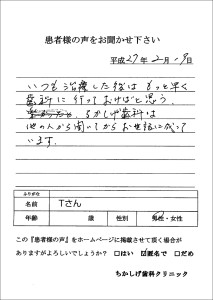 患者様の声をお聞かせ下さい
平成27年2月 9日
いつも治療した後は もっと早く
歯科に 行っておけばと思う。
ちかしげ歯科は
他の人から聞いてからお世話になって
います。
ふりがな
名前 Tさん
年齢 歳 性別 男性・女性
この『患者様の声』をホームページに掲載させて頂く場合が
ありますがよろしいでしょうか? □はい ☑匿名で □だめ
ちかしげ歯科クリニック